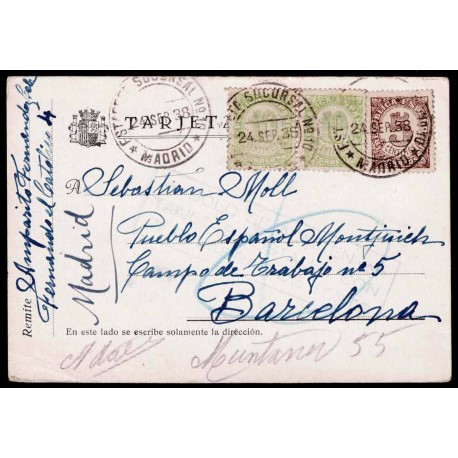 ESTAFETA SUCURSAL Nº 10
24 SEP. 38
★ MADRID ★
TARJETA
24 SEP. 38
24 SEP. 38
★ MADRID ★
10
10
A Sebastian Moll
Pueblo Español Montjuich
Campo de Trabajo nº 5
Barcelona
En este lado se escribe solamente la dirección.
Remite Amparito Fernandez
Fernando el Católico 4
Madrid
Muntaner 55